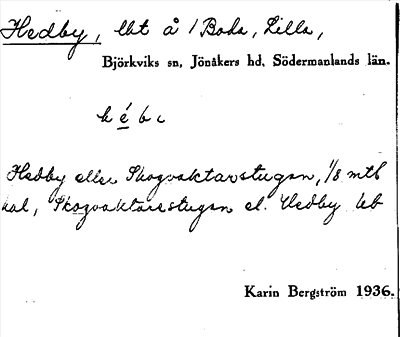 Hedby, lht å / Boda, Lilla,
Björkviks sn, Jönåkers hd, Södermanlands län.
hébc
Hedby eller Skogvaktarstugan, 1/8 mtl
kal, Skogvaktarestugan el. Hedby Jeb
Karin Bergström 1936.